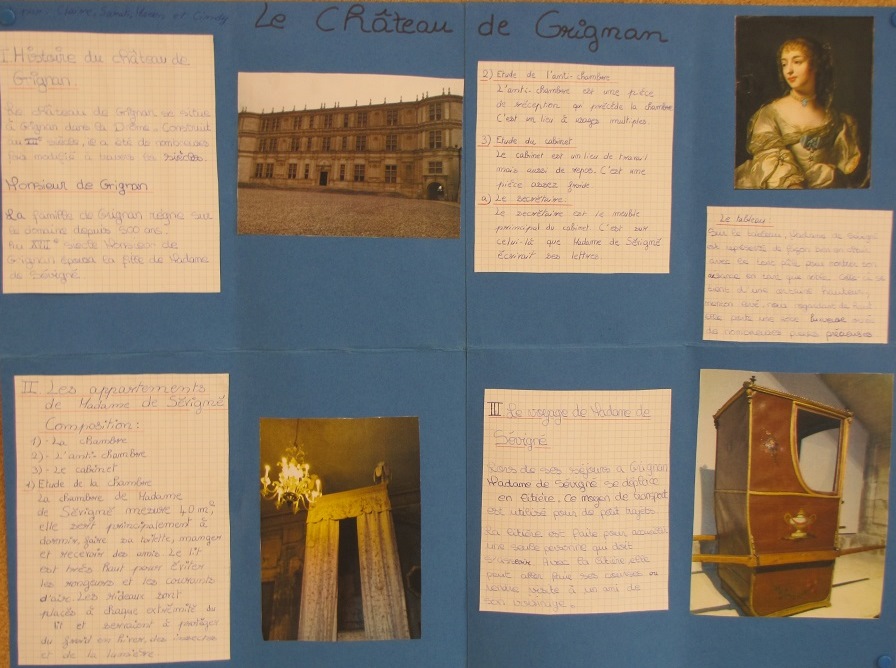 Le Château de Grignan
I Histoire du château de
Grignan
Le château de Grignan se situe
à Grignan dans la Drôme. Construit
au siècle, il a été de nombreuses
fois modifié à travers les siècles.
Monsieur de Grignan
La famille de Grignan règne sur
le domaine depuis 500 ans.
Au XVIIe siècle Monsieur de
Grignan épousa la fille de Madame
de Sévigné
2) Etude de l'anti-chambre
L'anti-chambre est une pièce
de réception qui précède la chambre
C'est un lieu à usages multiples.
3) Etude du cabinet
Le cabinet est un lieu de travail
mais aussi de repos. C'est une
pièce assez froide
a) Le secrétaire:
Le secrétaire est le meuble
principal du cabinet. C'est sur
celui-là que Madame de Sévigné
écrivait ses lettres.
Le tableau:
Sur le tableau, Madame de Sévigné
est représentée de façon
avec le pour montrer son
en tant que noble.
d'une
nous
elle porte une robe
de nombreuses pierres précieuses
II Les appartements
de Madame de Sévigné
Composition:
1)-La chambre
2)-L'anti-chambre
3)-Le cabinet
1) Etude de la chambre
La chambre de Madame
de Sévigné mesure 40m²,
elle sert principalement à
dormir, faire sa toilette, manger
et recevoir des amis. Le lit
est très haut pour éviter
les rongeurs et les courants
d'air. Les rideaux sont
placés à chaque extrémité du
lit et servaient à protéger
du froid en hiver, des insectes
et de la lumière.
III Le voyage de Madame de
Sévigné
Lors de ses séjours à Grignan
Madame de Sévigné se déplace
en litière. Ce moyen de transport
est utilisé pour de petit trajets
La litière est faite pour accueillir
une seule personne qui doit
s'asseoir. Avec la litière elle
peut aller faire ses courses ou
rendre visite à un ami de
son voisinage.